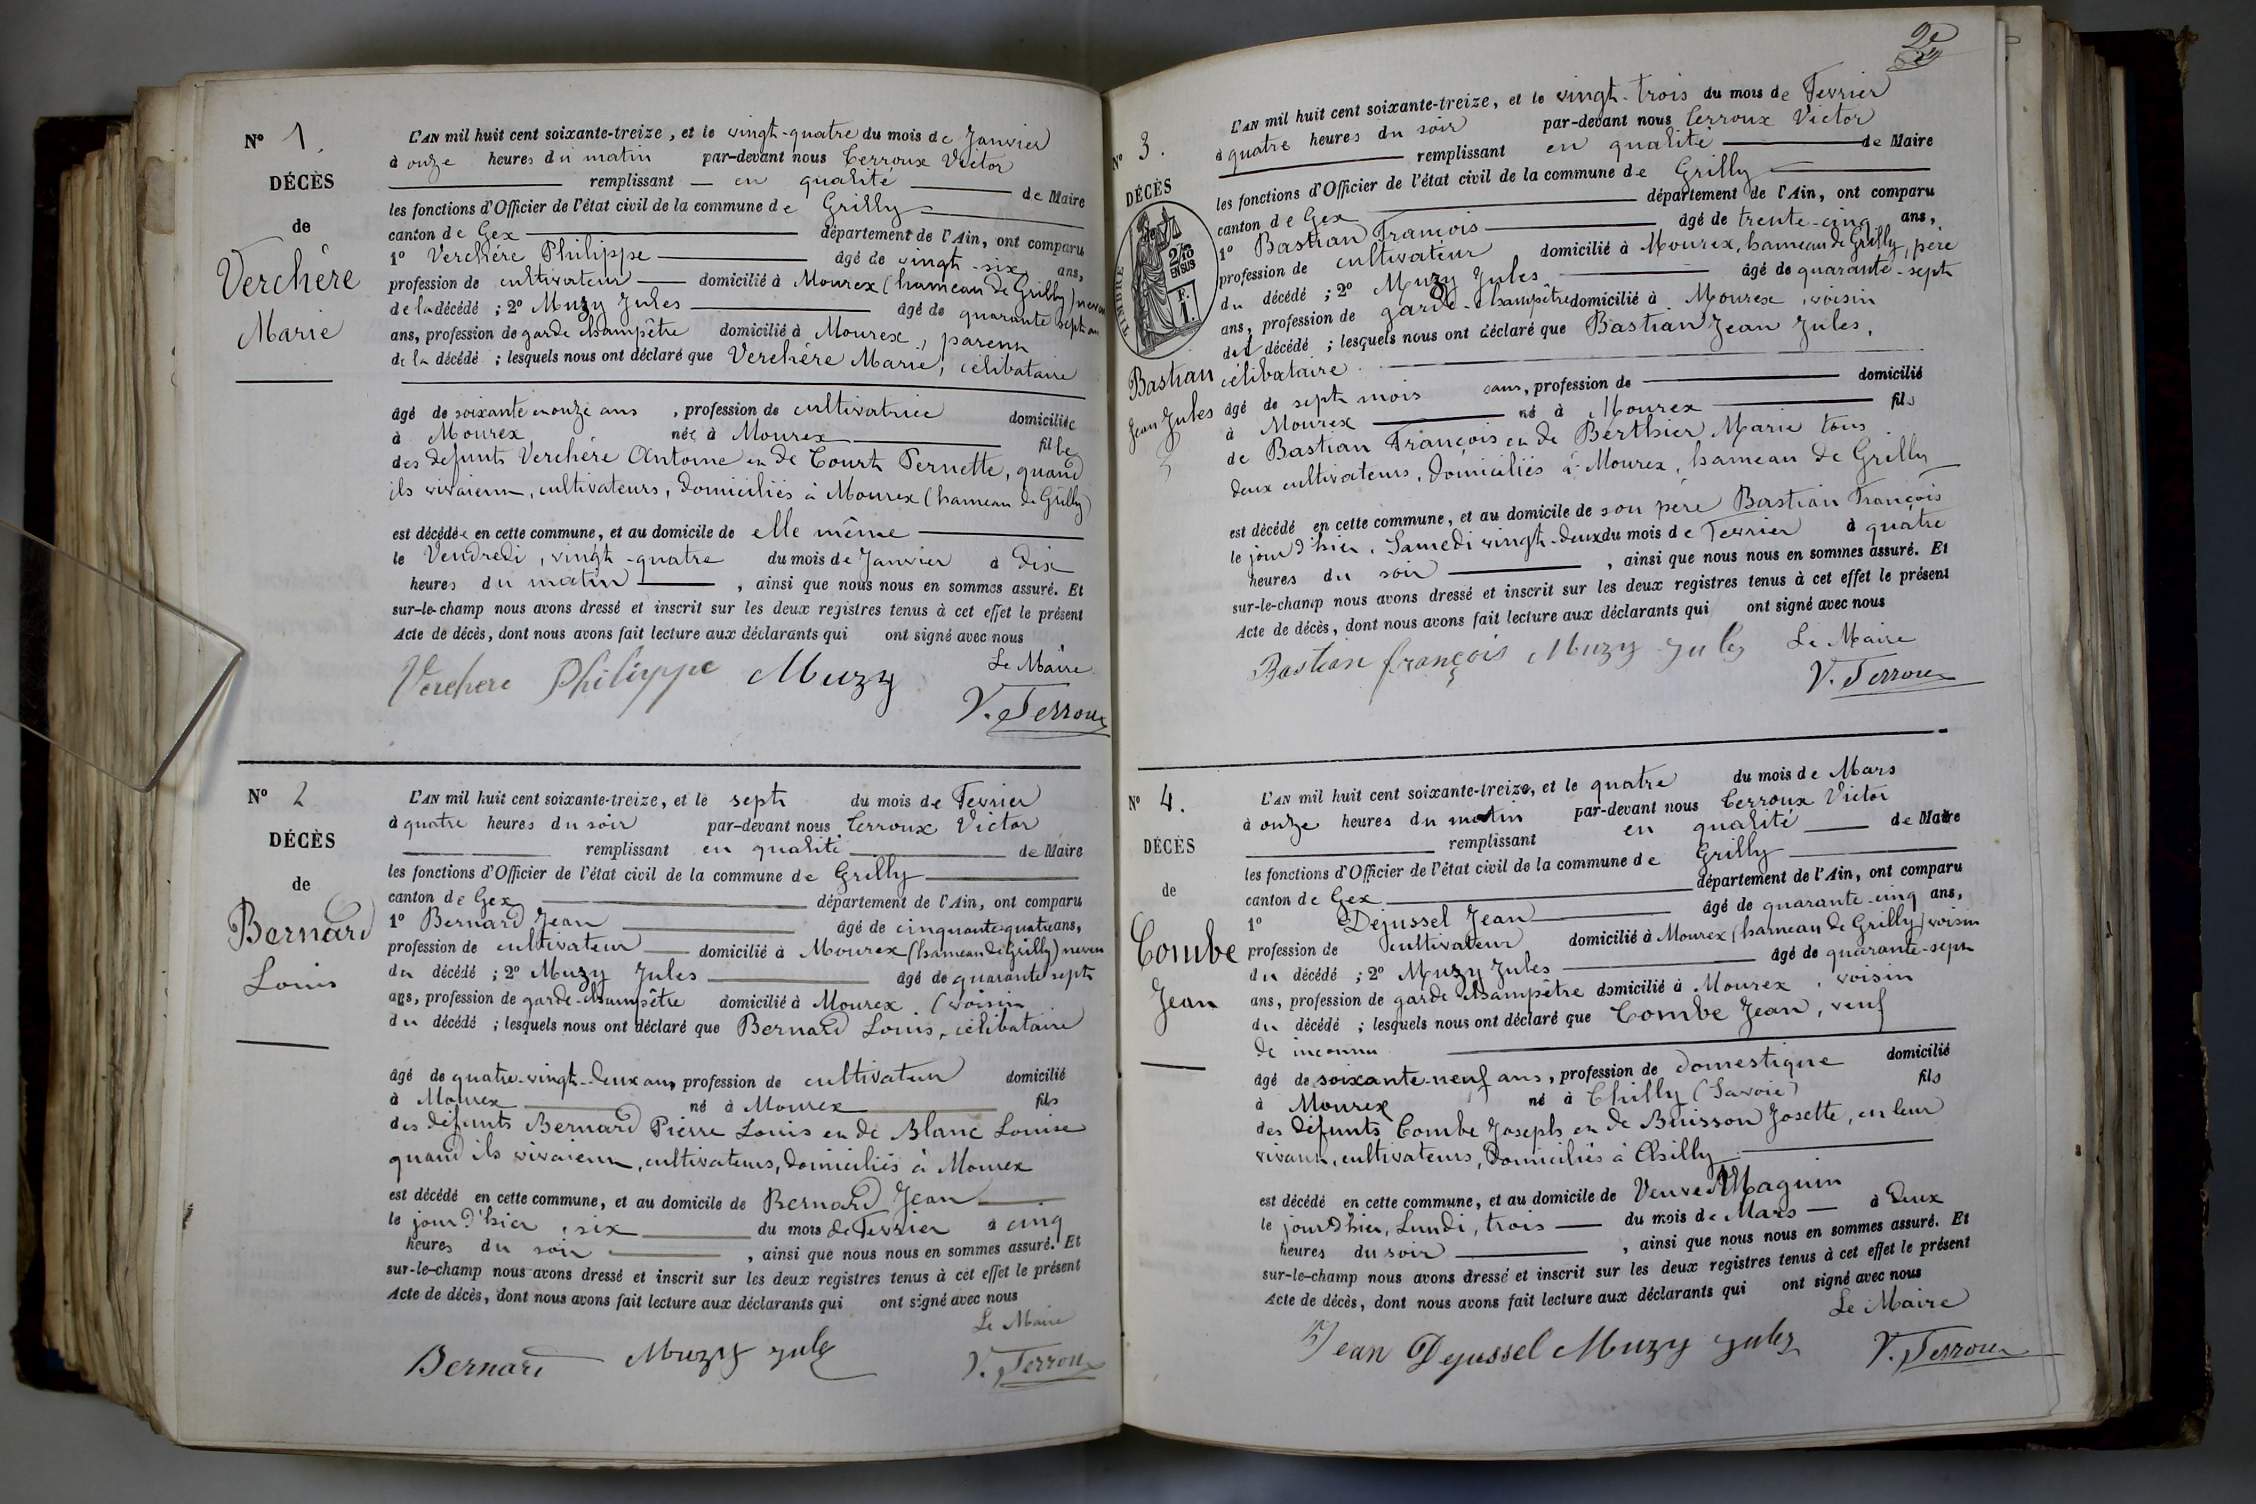 Nº 1.
DÉCÈS
de
Verchère
Marie
L'AN mil huit cent soixante-treize, et le vingt-quatre du mois de Janvier
à onze heures du matin par-devant nous Terroux Victor
remplissant en qualité de Maire
les fonctions d'Officier de l'état civil de la commune de Grilly
canton de Gex département de l'Ain, ont comparu
1º Verchère Philippe âgé de vingt-six ans,
profession de cultivateur domicilié à Mourex (hameau de Grilly) neveu
de la décédé ; 2º Muzy Jules âgé de quarante sept
ans, profession de garde champêtre domicilié à Mourex, parent
de la décédé ; lesquels nous ont déclaré que Verchère Marie, célibataire
âgé de soixante et onze ans, profession de cultivatrice domiciliée
à Mourex née à Mourex fille
des defunts Verchère Antoine et de Court Pernette, quand
ils vivaient, cultivateurs, domiciliés à Mourex (hameau de Grilly)
est décédée en cette commune, et au domicile de elle même
le Vendredi, vingt-quatre du mois de Janvier à dix
heures du matin, ainsi que nous nous en sommes assuré. Et
sur-le-champ nous avons dressé et inscrit sur les deux registres tenus à cet effet le présent
Acte de décès, dont nous avons fait lecture aux déclarants qui ont signé avec nous
Le Maire
Verchere Philippe Muzy
V. Terroux
Nº 2
DÉCÈS
de
Bernard
Louis
L'AN mil huit cent soixante-treize, et le sept du mois de Fevrier
à quatre heures du soir par-devant nous Terroux Victor
remplissant en qualité de Maire
les fonctions d'Officier de l'état civil de la commune de Grilly
canton de Gex département de l'Ain, ont comparu
1º Bernard Jean âgé de cinquante quatre ans,
profession de cultivateur domicilié à Mourex (hameau de Grilly) neveu
du décédé ; 2º Muzy Jules âgé de quarante sept
ans, profession de garde-champêtre domicilié à Mourex (voisin
du décédé ; lesquels nous ont déclaré que Bernard Louis, célibataire
âgé de quatre-vingt-deux ans, profession de cultivateur domicilié
à Mourex né à Mourex fils
des défunts Bernard Pierre Louis et de Blanc Louise
quand ils vivaient, cultivateurs, domiciliés à Mourex
est décédé en cette commune, et au domicile de Bernard Jean
le jour d'hier, six du mois de Fevrier à cinq
heures du soir, ainsi que nous nous en sommes assuré. Et
sur-le-champ nous avons dressé et inscrit sur les deux registres tenus à cet effet le présent
Acte de décès, dont nous avons fait lecture aux déclarants qui ont signé avec nous
Le Maire
Bernard Muzy Jules
V. Terroux
2e
Nº 3.
DÉCÈS
TIMBRE
2/10
EN SUS
F.
1.
Bastian
Jean Jules
L'AN mil huit cent soixante-treize, et le vingt-trois du mois de Fevrier
à quatre heures du soir par-devant nous Terroux Victor
remplissant en qualité de Maire
les fonctions d'Officier de l'état civil de la commune de Grilly
canton de Gex département de l'Ain, ont comparu
1º Bastian François âgé de trente-cinq ans,
profession de cultivateur domicilié à Mourex, hameau de Grilly, père
du décédé ; 2º Muzy Jules âgé de quarante-sept
ans, profession de garde-champêtre domicilié à Mourex, voisin
du décédé ; lesquels nous ont déclaré que Bastian Jean Jules,
célibataire.
âgé de sept mois ans, profession de domicilié
à Mourex né à Mourex fils
de Bastian François et de Berthier Marie tous
deux cultivateurs, domiciliés à Mourex, hameau de Grilly
est décédé en cette commune, et au domicile de son père Bastian François
le jour d'hier, Samedi vingt-deux du mois de Fevrier à quatre
heures du soir, ainsi que nous nous en sommes assuré. Et
sur-le-champ nous avons dressé et inscrit sur les deux registres tenus à cet effet le présent
Acte de décès, dont nous avons fait lecture aux déclarants qui ont signé avec nous
Bastian françois Muzy Jules Le Maire
V. Terroux
Nº 4.
DÉCÈS
de
Combe
Jean
L'AN mil huit cent soixante-treize, et le quatre du mois de Mars
à onze heures du matin par-devant nous Terroux Victor
remplissant en qualité de Maire
les fonctions d'Officier de l'état civil de la commune de Grilly
canton de Gex département de l'Ain, ont comparu
1º Dejussel Jean âgé de quarante-cinq ans,
profession de cultivateur domicilié à Mourex (hameau de Grilly) voisin
du décédé ; 2º Muzy Jules âgé de quarante-sept
ans, profession de garde champêtre domicilié à Mourex, voisin
du décédé ; lesquels nous ont déclaré que Combe Jean, veuf
de inconnu
âgé de soixante-neuf ans, profession de domestique domicilié
à Mourex né à Chilly (Savoie) fils
des défunts Combe Joseph et de Buisson Josette, en leur
vivant, cultivateurs, domiciliés à Chilly
est décédé en cette commune, et au domicile de Veuve Maguin
le jour d'hier, Lundi, trois du mois de Mars à deux
heures du soir, ainsi que nous nous en sommes assuré. Et
sur-le-champ nous avons dressé et inscrit sur les deux registres tenus à cet effet le présent
Acte de décès, dont nous avons fait lecture aux déclarants qui ont signé avec nous
Le Maire
Jean Dejussel Muzy Jules V. Terroux